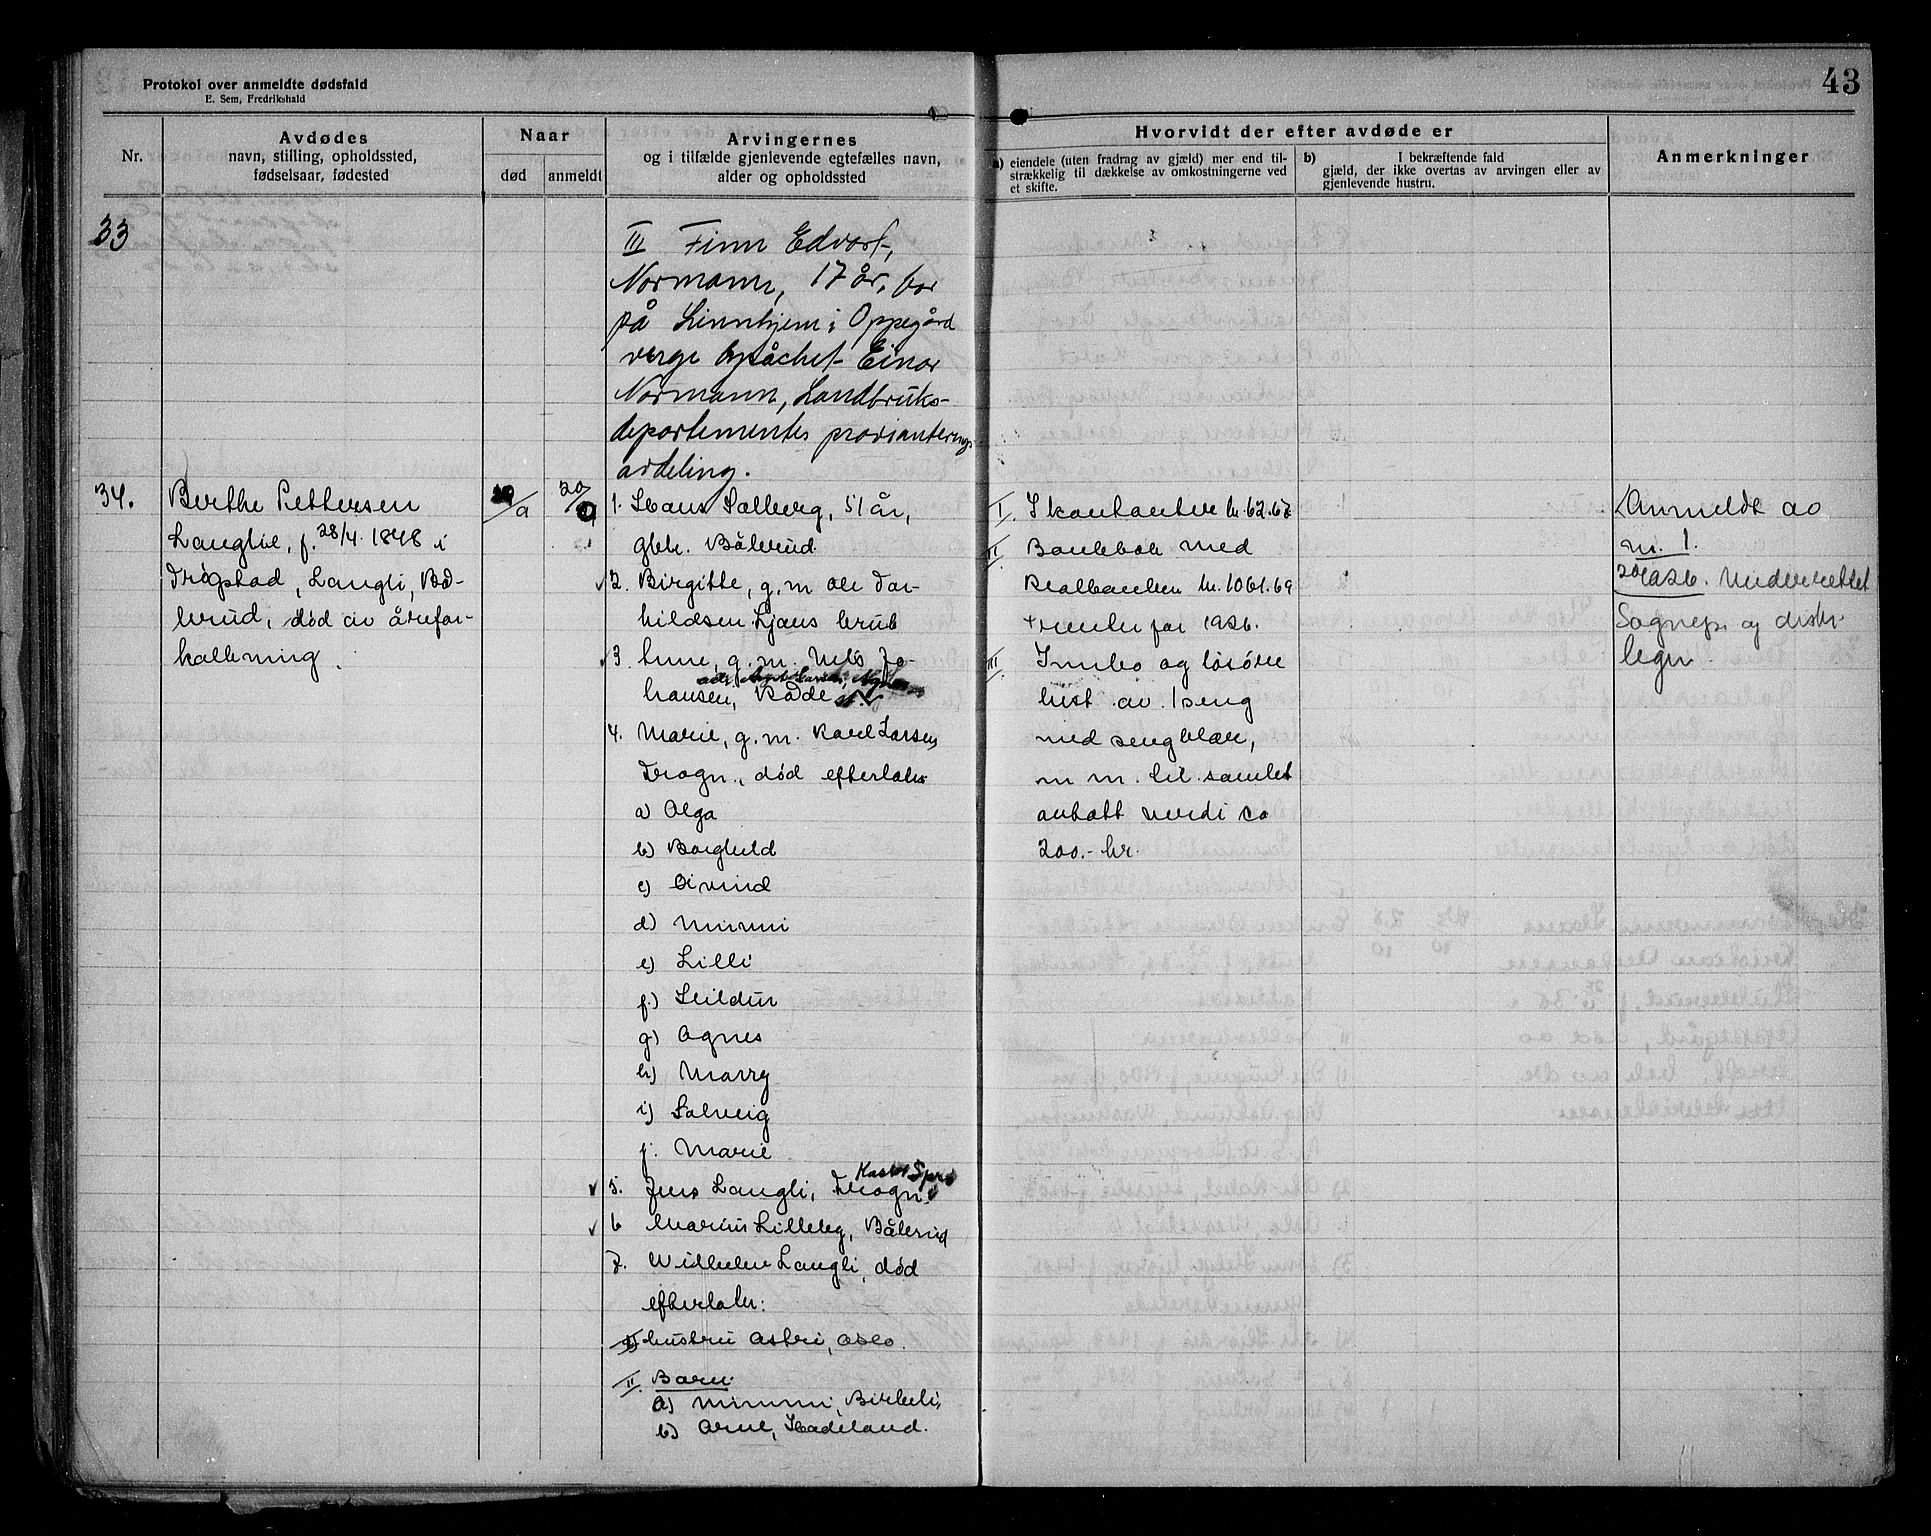 Protokol over anmeldte dødsfald
E. Sem, Fredrikshald
43
Nr.
Avdødes
navn, stilling, opholdssted,
fødselsaar, fødested
Naar
død
anmeldt
Arvingernes
og i tilfælde gjenlevende egtefælles navn,
alder og opholdssted
Hvorvidt der efter avdøde er
a) eiendele (uten fradrag av gjæld) mer end til-
strækkelig til dækkelse av omkostningerne ved
et skifte.
b) I bekræftende fald
gjæld, der ikke overtas av arvingen eller av
gjenlevende hustru.
Anmerkninger
33
III Finn Edvart,
Normann, 17 år, bor
på Linnhjem i Oppegård
verge Einar
Normann, Landbruks-
departementes provianterings
avdeling.
34.
Berthe Pettersen
Langlie, f. 28/4 1848 i
Trøgstad, Langli, Bå-
lerud, død av årefor-
kalkning.
20/9
1. Hans Solberg, 51 år,
gbr. Bålerud
2. Birgitte, g.m. Ole Tor-
hildsen Ljans brub
3. Line, g.m. Nils Jo-
hansen, Råde
4. Marie, g.m. Karl Larsen
Drøgn., død efterlater
a) Olga
b) Borghild
c) Øivind
d) Mimmi
e) Lilli
f.) Hildur
g) Agnes
h) Marry
i) Solveig
j. Marie
5. Jens Langli, Drøgn
6 Marius Lilleleg, Bålerud
7. Wilhelm Langli, død
efterlater:
I) hustru Astri, Oslo.
II Barn.
a) Mimmi, Birkeli,
b) Arne, Hadeland.
I. I kontanter kr. 62.67
II Bankbok med
Realbanken kr. 1061.69
+ renter for 1926.
III Innbo og løsøre
best. av 1 seng
med sengklær,
m m. til samlet
antatt verdi ca
200.- kr.
Anmeldt av
nr. 1.
20/9 1926. Underrettet
Sognepr. og distr.
legen.